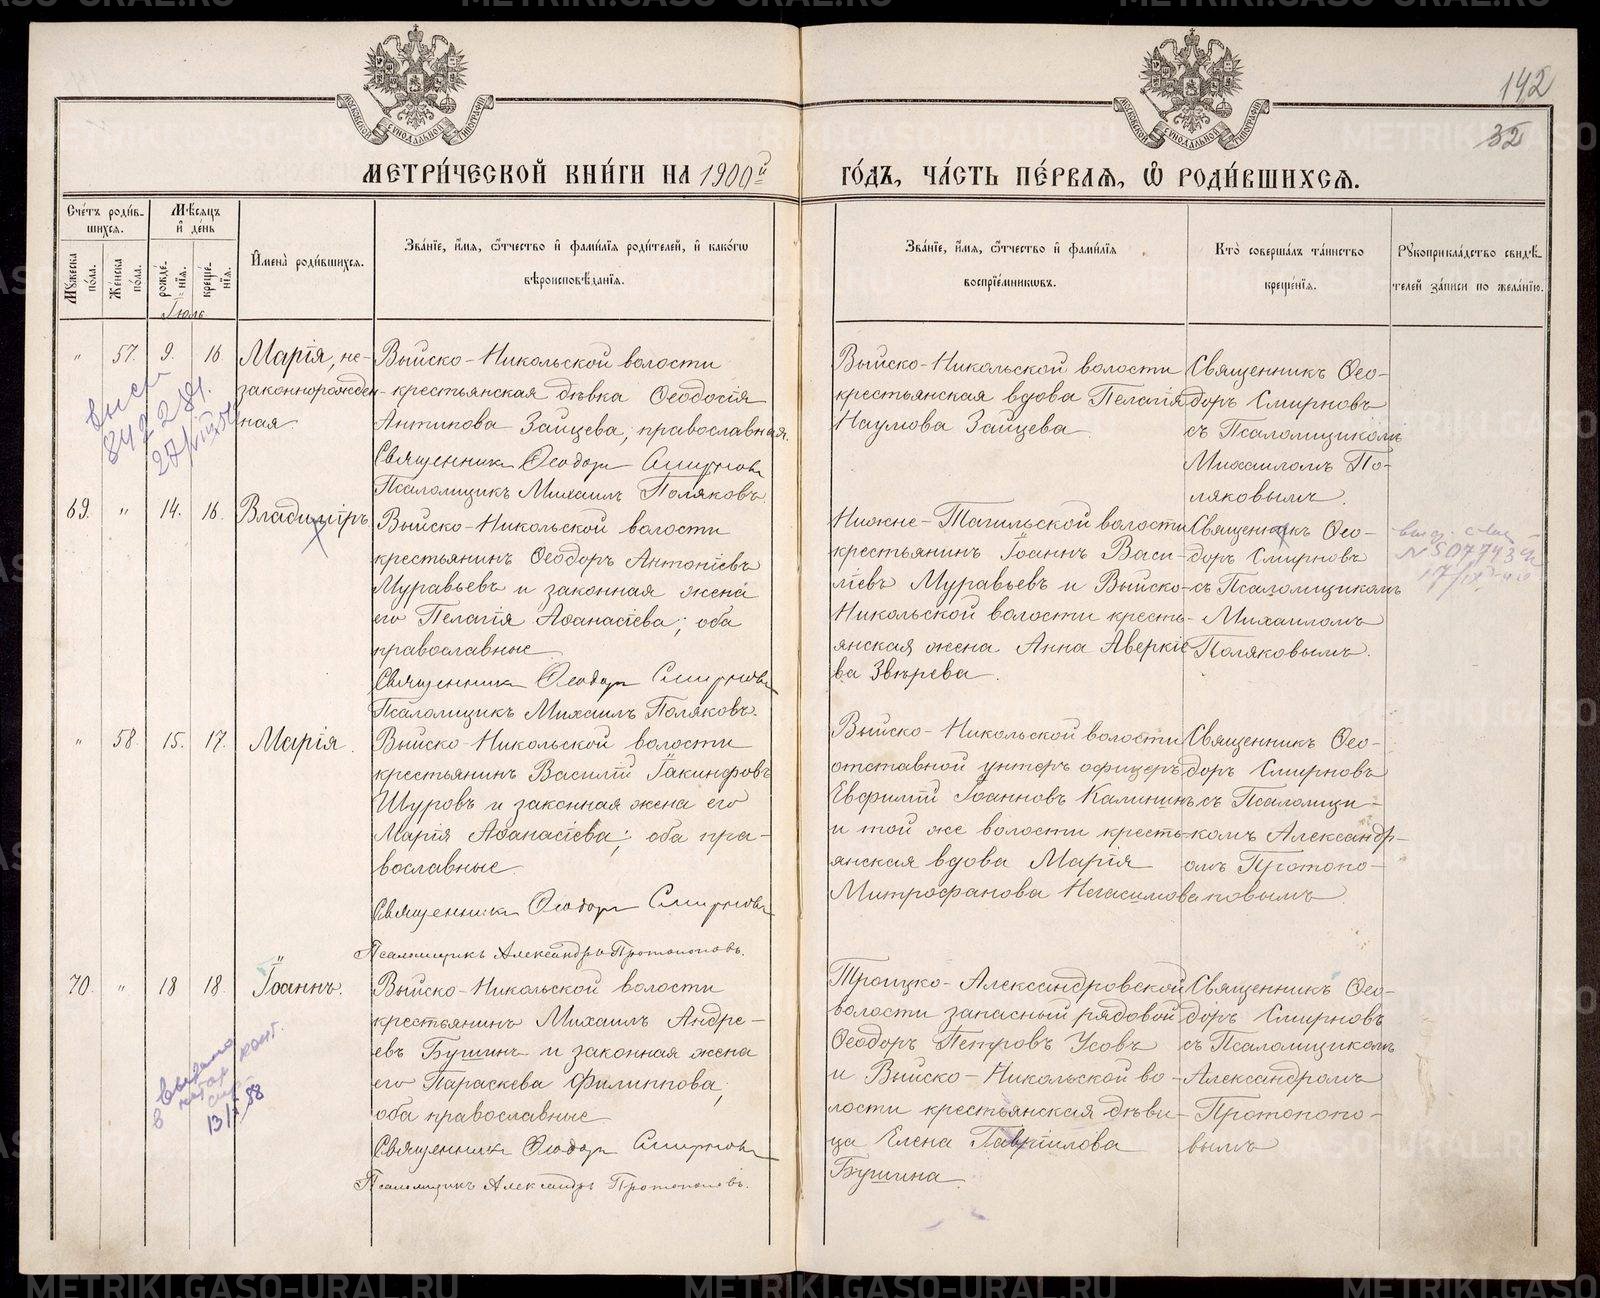 142
32
МЕТРИ́ЧЕСКОЙ КНИ́ГИ НА 1900й
ГО́ДЪ, ЧА́СТЬ ПЕ́РВАѦ, Ѡ РОДИ́ВШИХСѦ.
Сче́тъ роди́в-
шихся.
Мꙋ́жеска по́ла.
Же́нска по́ла.
Мѣ́сяцъ и́ де́нь
рожде́-
нія.
креще́-
нія.
Іюль
И҆мена̀ роди́вшихся.
Зва́нїе, и҆́мя, ѻ҆́тчество и҆ фами́лїя роди́телей, и҆ како́гѡ
вѣроисповѣ́данїя.
Зва́нїе, и҆́мя, ѻ҆́тчество и҆ фами́лїя
воспрїе́мникѡвъ.
Кто̀ соверша́лъ та́инство
креще́нїя.
Рꙋкоприкла́дство свидѣ́-
телей за́писи по жела́нїю.
" 57. 9. 16. Марія, не-
законнорожден-
ная.
Выйско-Никольской волости
крестьянская дѣвка Ѳеодосія
Антипова Зайцева, православная.
Священникъ Ѳеодоръ Смирновъ
Псаломщикъ Михаилъ Поляковъ.
Выйско-Никольской волости
крестьянская вдова Пелагія
Наумова Зайцева.
Священникъ Ѳео-
доръ Смирновъ
съ Псаломщикомъ
Михаиломъ По-
ляковымъ.
69. " 14. 16. Владиміръ
Выйско-Никольской волости
крестьянинъ Ѳеодоръ Антоніевъ
Муравьевъ и законная жена
его Пелагія Аѳанасіева; оба
православные
Священникъ Ѳеодоръ Смирновъ
Псаломщикъ Михаилъ Поляковъ.
Нижне-Тагильской волости
крестьянинъ Іоаннъ Васи-
ліевъ Муравьевъ и Выйско-
Никольской волости кресть-
янская жена Анна Аверкіе
ва Звѣрева.
Священникъ Ѳео-
доръ Смирновъ
съ Псаломщикомъ
Михаиломъ
Поляковымъ.
" 58. 15. 17. Марія.
Выйско-Никольской волости
крестьянинъ Василій Іакинфовъ
Щуровъ и законная жена его
Марія Аѳанасіева; оба пра-
вославные.
Священникъ Ѳеодоръ Смирновъ
Псаломщикъ Александръ Протопоповъ.
Выйско-Никольской волости
отставной унтеръ офицеръ
Евфимій Іоанновъ Калининъ
и той же волости кресть-
янская вдова Марія
Митрофанова Негасимова
Священникъ Ѳео-
доръ Смирновъ
съ Псаломщи-
комъ Александр-
омъ Протопо-
повымъ.
70. " 18 18. Іоаннъ.
Выйско-Никольской волости
крестьянинъ Михаилъ Андре-
евъ Бушинъ и законная жена
его Параскева Филиппова;
оба православные.
Священникъ Ѳеодоръ Смирновъ
Псаломщикъ Александръ Протопоповъ.
Троицко-Александровской
волости запасный рядовой
Ѳеодоръ Петровъ Усовъ
и Выйско-Никольской во-
лости крестьянская дѣви-
ца Елена Гавріилова
Бушина.
Священникъ Ѳео-
доръ Смирновъ
съ Псаломщикомъ
Александромъ
Протопопо-
вымъ
METRIKI.GASO-URAL.RU